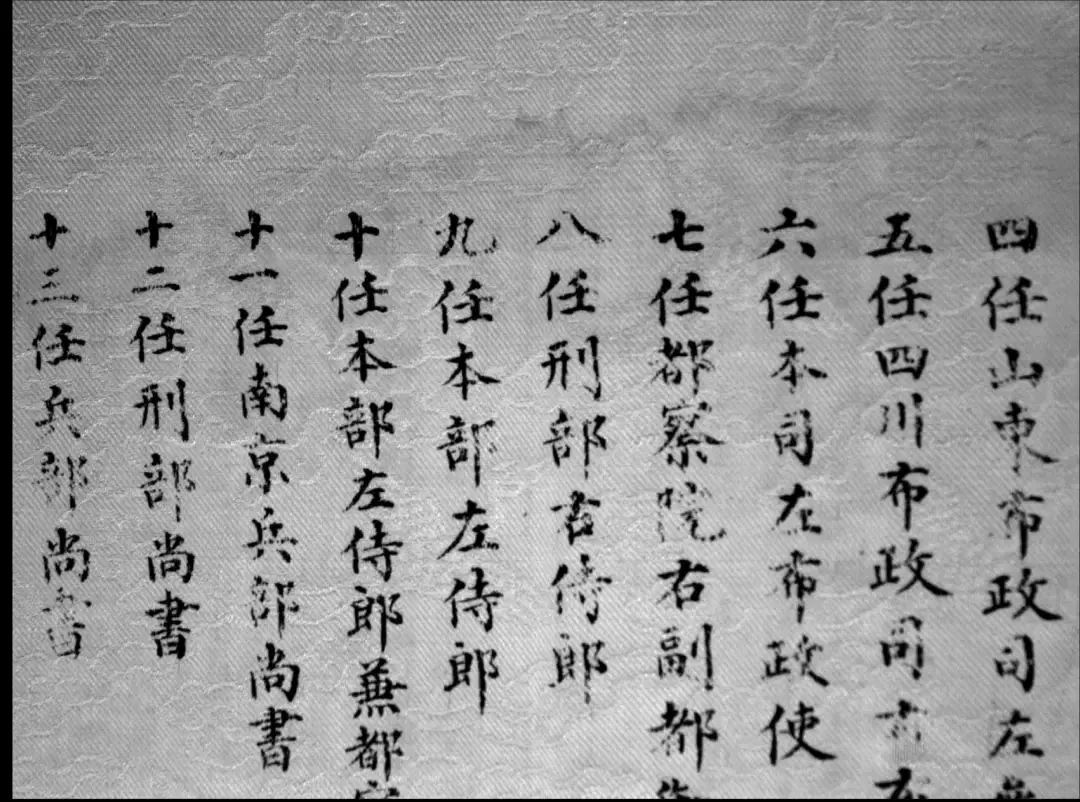 四任山東布政司左
五任四川布政司右
六任本司左布政使
七任都察院右副都
八任刑部右侍郎
九任本部左侍郎
十任本部左侍郎兼都
十一任南京兵部尚書
十二任刑部尚書
十三任兵部尚書